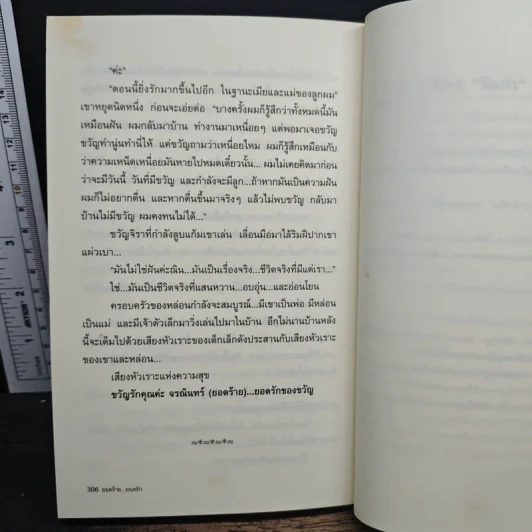 "ค่ะ"
"ตอนนี้ยิ่งรักมากขึ้นไปอีก ในฐานะเมียและแม่ของลูกผม"
เขาหยุดนิดหนึ่ง ก่อนจะเอ่ยต่อ "บางครั้งผมก็รู้สึกว่าทั้งหมดนี้มัน
เหมือนฝัน ผมกลับมาบ้าน ทำงานมาเหนื่อยๆ แต่พอมาเจอขวัญ
ขวัญทำนู่นทำนี่ให้ แค่ขวัญถามว่าเหนื่อยไหม ผมก็รู้สึกเหมือนกับ
ว่าความเหน็ดเหนื่อยมันหายไปหมดเดี๋ยวนั้น... ผมไม่เคยคิดมาก่อน
ว่าจะมีวันนี้ วันที่มีขวัญ และกำลังจะมีลูก...ถ้าหากมันเป็นความฝัน
ผมก็ไม่อยากตื่น และหากตื่นขึ้นมาจริงๆ แล้วไม่พบขวัญ กลับมา
บ้านไม่มีขวัญ ผมคงทนไม่ได้..."
ขวัญจิราที่กำลังลูบแก้มเขาเล่น เลื่อนมือมาไล้ริมฝีปากเขา
แผ่วเบา...
"มันไม่ใช่ฝันค่ะณิน...มันเป็นเรื่องจริง...ชีวิตจริงที่มีแต่เรา..."
ใช่...มันเป็นชีวิตจริงที่แสนหวาน...อบอุ่น...และอ่อนโยน
ครอบครัวของหล่อนกำลังจะสมบูรณ์...มีเขาเป็นพ่อ มีหล่อน
เป็นแม่ และมีเจ้าตัวเล็กมาวิ่งเล่นไปมาในบ้าน อีกไม่นานบ้านหลัง
นี้จะเต็มไปด้วยเสียงหัวเราะของเด็กเล็กดังประสานกับเสียงหัวเราะ
ของเขาและหล่อน...
เสียงหัวเราะแห่งความสุข
ขวัญรักคุณค่ะ จรณินทร์ (ยอดร้าย)...ยอดรักของขวัญ
306 ยอดร้าย...ยอดรัก